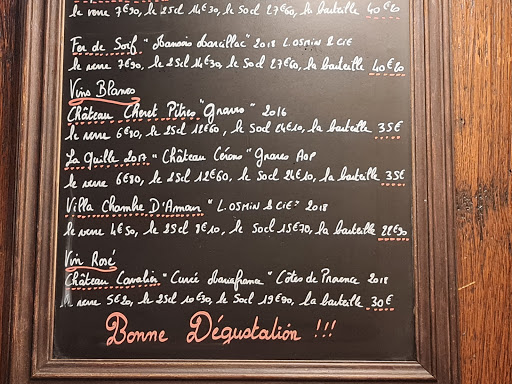 le verre 7€30, le 25cl 14€30, le 50cl 27€60, la bouteille 40€60
Fer de Soif "Marcillac" 2018 L.OSMIN & CIE
le verre 7€30, le 25cl 14€30, le 50cl 27€60, la bouteille 40€60
Vins Blancs
Château Cheret Pitres "Graves" 2016
le verre 6€80, le 25cl 12€60, le 50cl 24€10, la bouteille 35€
La Quille 2017 "Château Cérons" Graves AOP
le verre 6€80, le 25cl 12€60, le 50cl 24€10, la bouteille 35€
Villa Chambre D'Amour "L.OSMIN & CIE" 2018
le verre 4€50, le 25cl 8€10, le 50cl 15€70, la bouteille 22€90
Vin Rosé
Château Cavalier "Cuvée Mariafrance" Côtes de Provence 2018
le verre 5€20, le 25cl 10€30, le 50cl 19€90, la bouteille 30€
Bonne Dégustation !!!